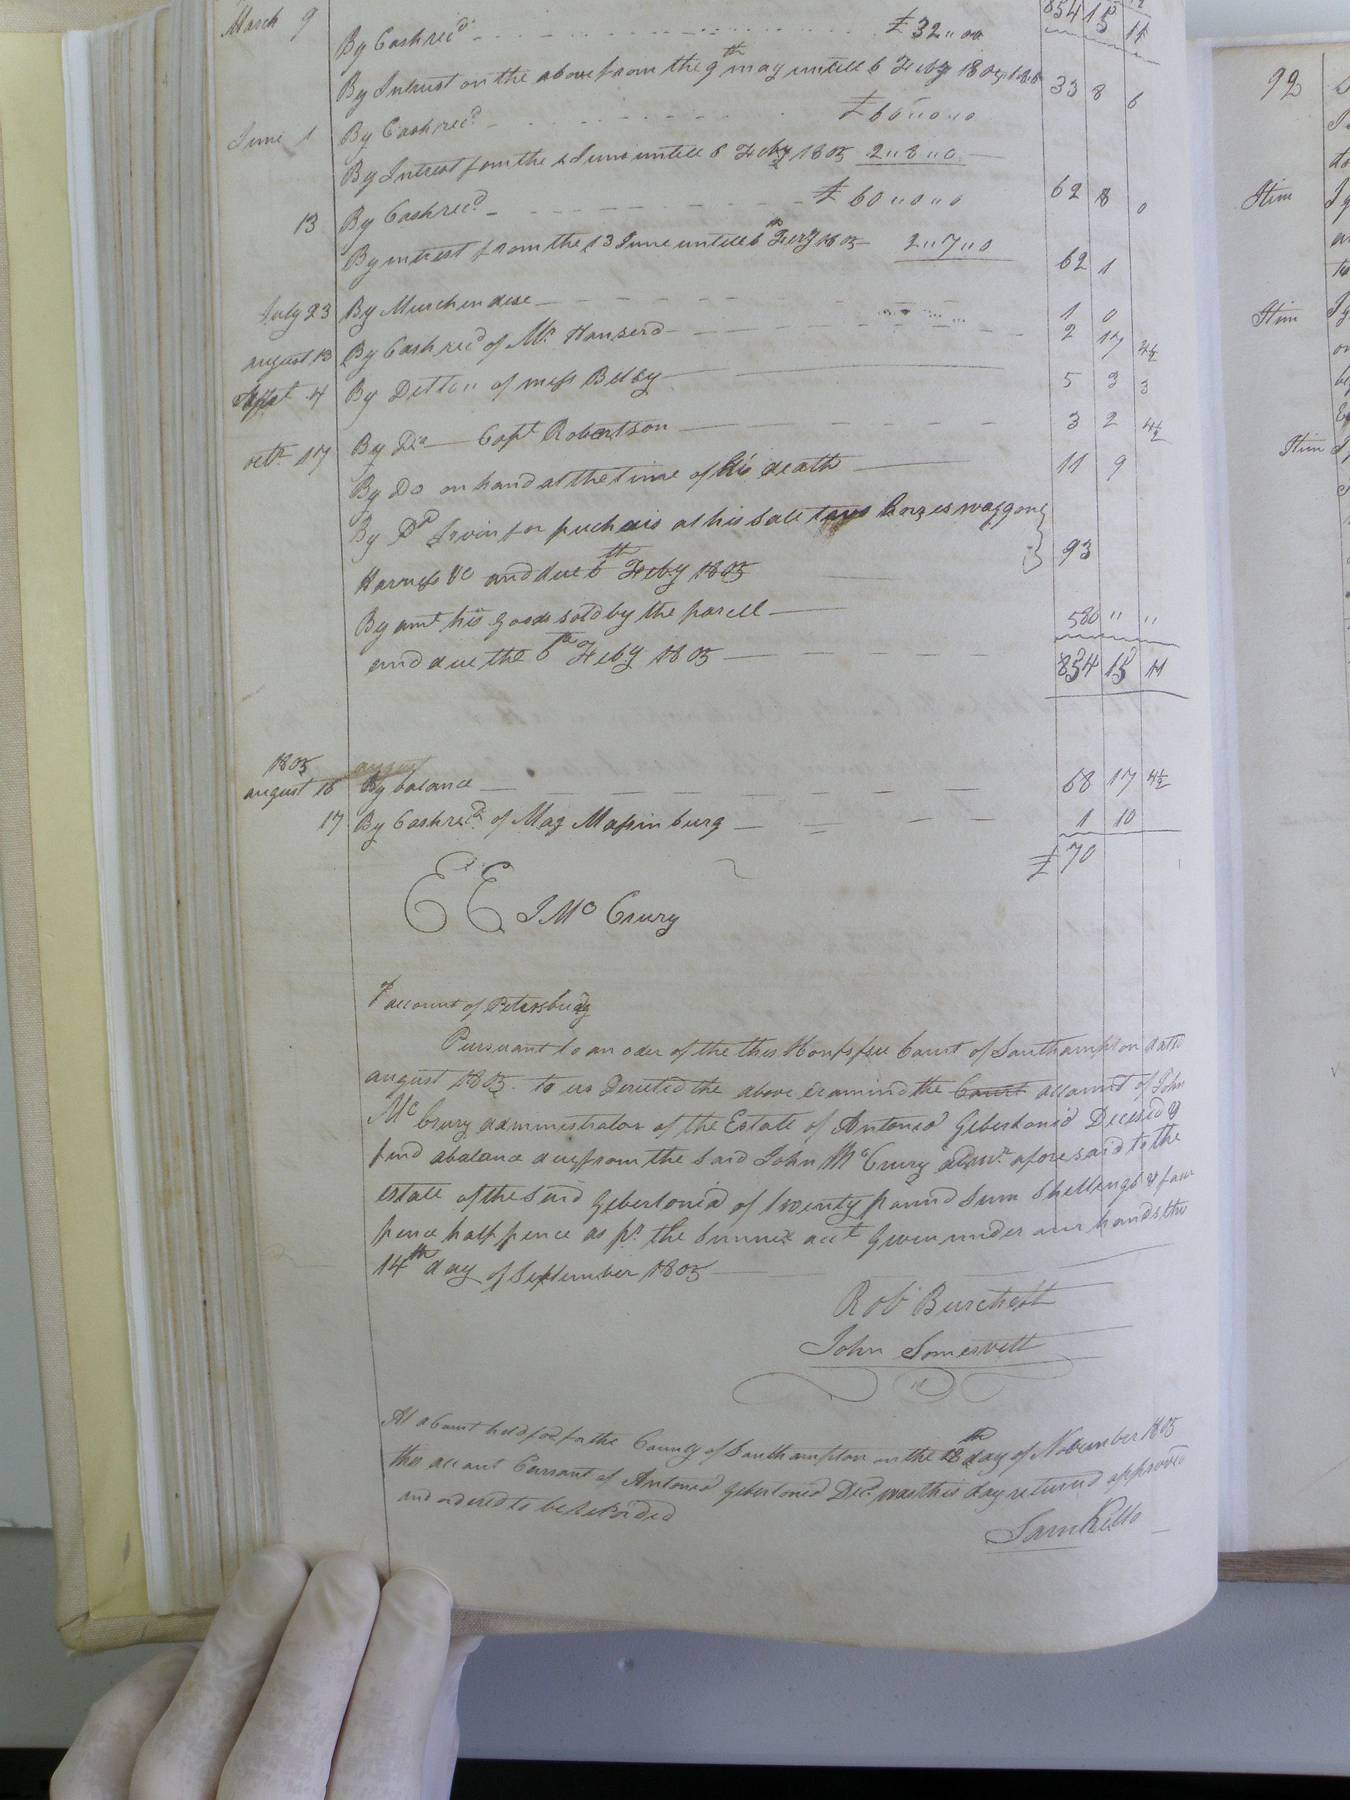 854 15 11
March 9 By Cash recd £32 " 00
By Intrust on the above from the 9th may untill 6 Feby 1805 33 8 6
June 1 By Cash recd £60 " 0 " 0
By Intrest from the 1 June untill 6 Feby 1805 2 " 8 " 0
62 8 0
13 By Cash recd £60 " 0 " 0
By intrest from the 13 June untill 6th Feby 1805 2 " 7 " 0
62 1
July 23 By Murchendise 1 0
august 13 By Cash recd of Mr Hanserd 2 17 4½
Sept 4 By Detto " of mess Belsby 5 3 3
octr 17 By Do Capt Robertson 3 2 4½
By Do on hand at the time of his death 11 9
By Do Irvin for puchais at his Sale horses waggons
Harness &c and due 6th Feby 1805 93
By amt his goods sold by the parcell
580 " "
and due the 6th Feby 1805
854 15 11
1805
august 16 By balance 68 17 4½
17 By Cash recd of Maj Massinburg 1 10
£ 70
E E J Mc Crury
account of Petersburg
Pursuant to an oder of the this Court of Southampton
august 1805 to us Derected the above examind the Court account of John
Mc Crury administrator of the Estate of Antonio Gibertonio Decesed &
find a balance due from the Said John McCrury admr. afore said to the
estate of the Said Gibertonio of twenty pound Shellings & four
pence half pence as pr. the acct Given under our hands this
14th day of September 1805
Rob Burchett
John Somervell
At a Court held for the County of Southampton on the 18th day of November 1805
this account Currant of Antonio Gibertonio Decd. was this day returnd approved
and ordered to be Recorded
Saml Kello
92
Itim
Itim
Itim